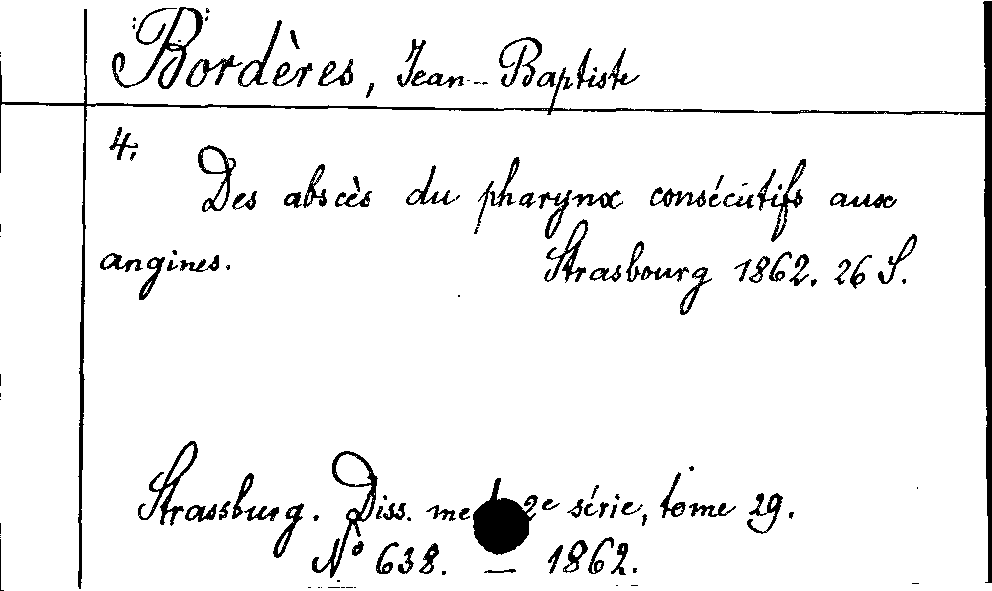 Bordères, Jean-Baptiste
4.
Des abscès du pharynx consécutifs aux
angines. Strasbourg 1862. 26 S.
Strassburg. Diss. med. 2e série, tome 29.
No 638. — 1862.